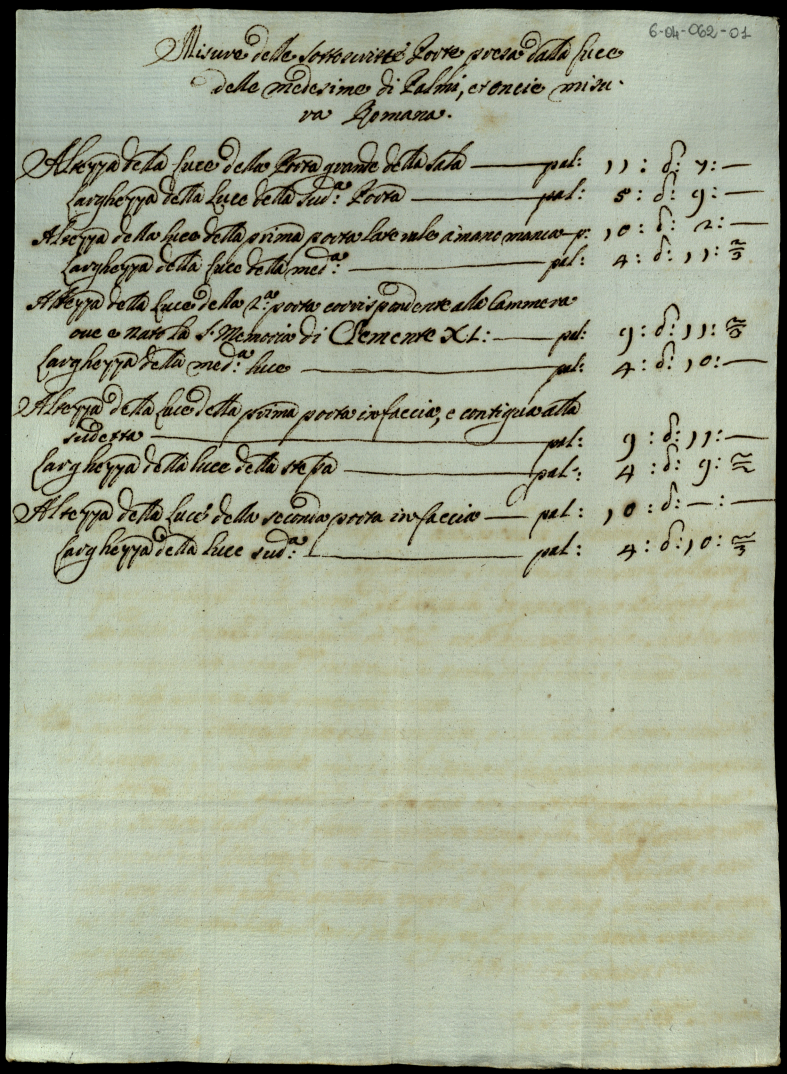 6-04-062-01
Misure delle sottoscritte Porte presa dalla luce
delle medesime di Palmi, et oncie misu-
ra Romana.
Altezza della Luce della Porta grande della Sala — pal: 11: d: 7: —
Larghezza della Luce della Sud.ª Porta — pal: 5: d: 9: —
Altezza della luce della prima porta laterale à mano manca — p: 10: d: 2: —
Larghezza della Luce della med.ª — pal: 4: d: 11:
Altezza della Luce della 2.ª porta corrispondente alla Cammera
oue è nato la S. Memoria di Clemente XI: — pal: 9: d: 11:
Larghezza della med.ª luce — pal: 4: d: 10: —
Altezza della Luce della prima porta in faccia, e contigua alla
sudetta — pal: 9: d: 11: —
Larghezza della luce della stessa — pal: 4: d: 9:
Altezza della Luce della seconda porta in faccia — pal: 10: d: —: —
Larghezza della luce sud.ª: — pal: 4: d: 10: